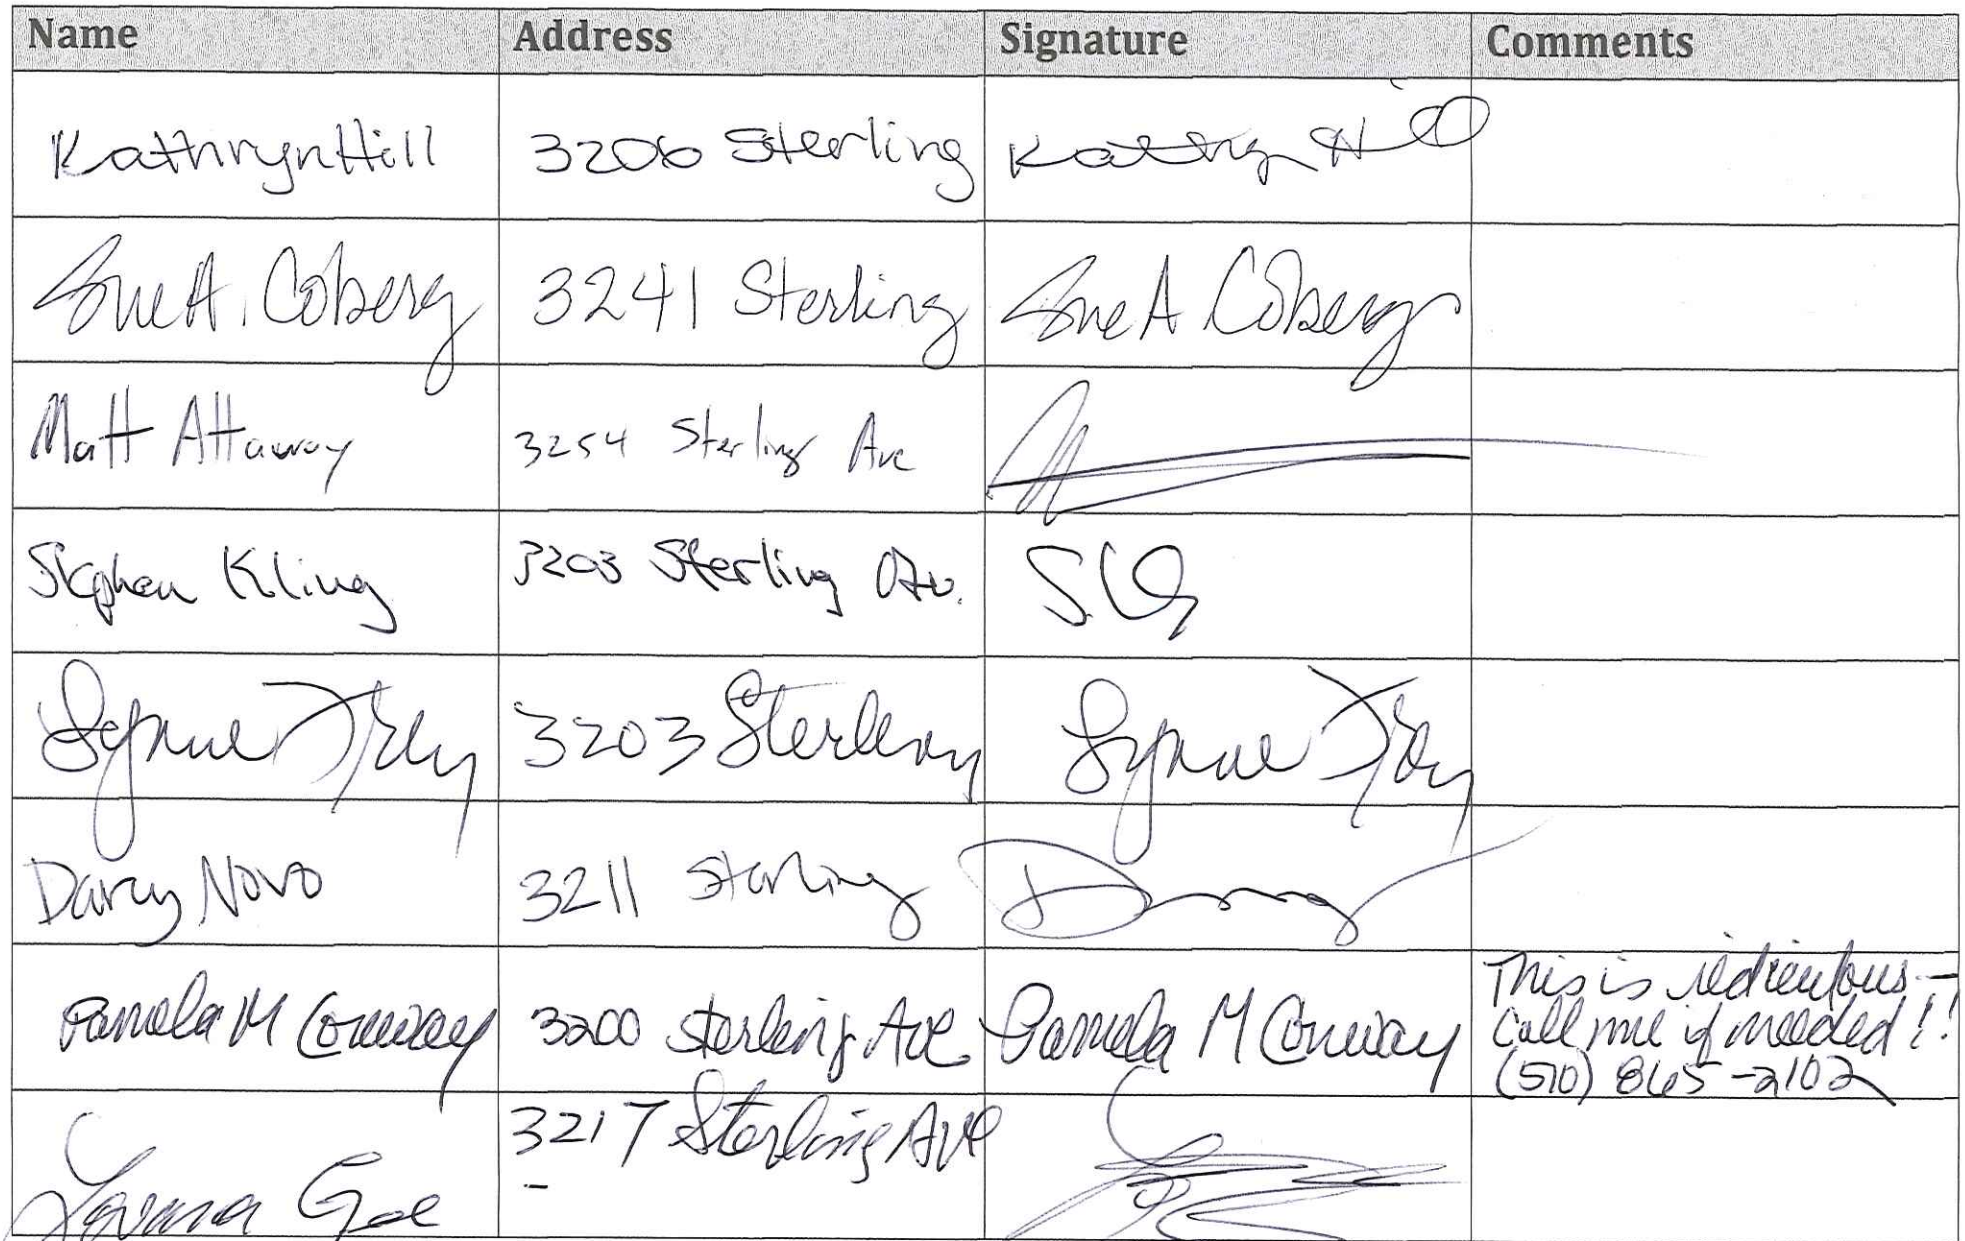 Name Address Signature Comments
Kathryn Hill 3206 Sterling Kathryn Hill
Sue A. Coberg 3241 Sterling Sue A Coberg
Matt Attaway 3254 Sterling Ave
Stephen Kling 3203 Sterling Av.
Lynne 3203 Sterling Lynne
Darcy Novo 3211 Sterling
Pamela M Conway 3200 Sterling Ave Pamela M Conway
This is rediculous -
Call me if needed!!
(510) 865-2102
3217 Sterling Ave
Goe